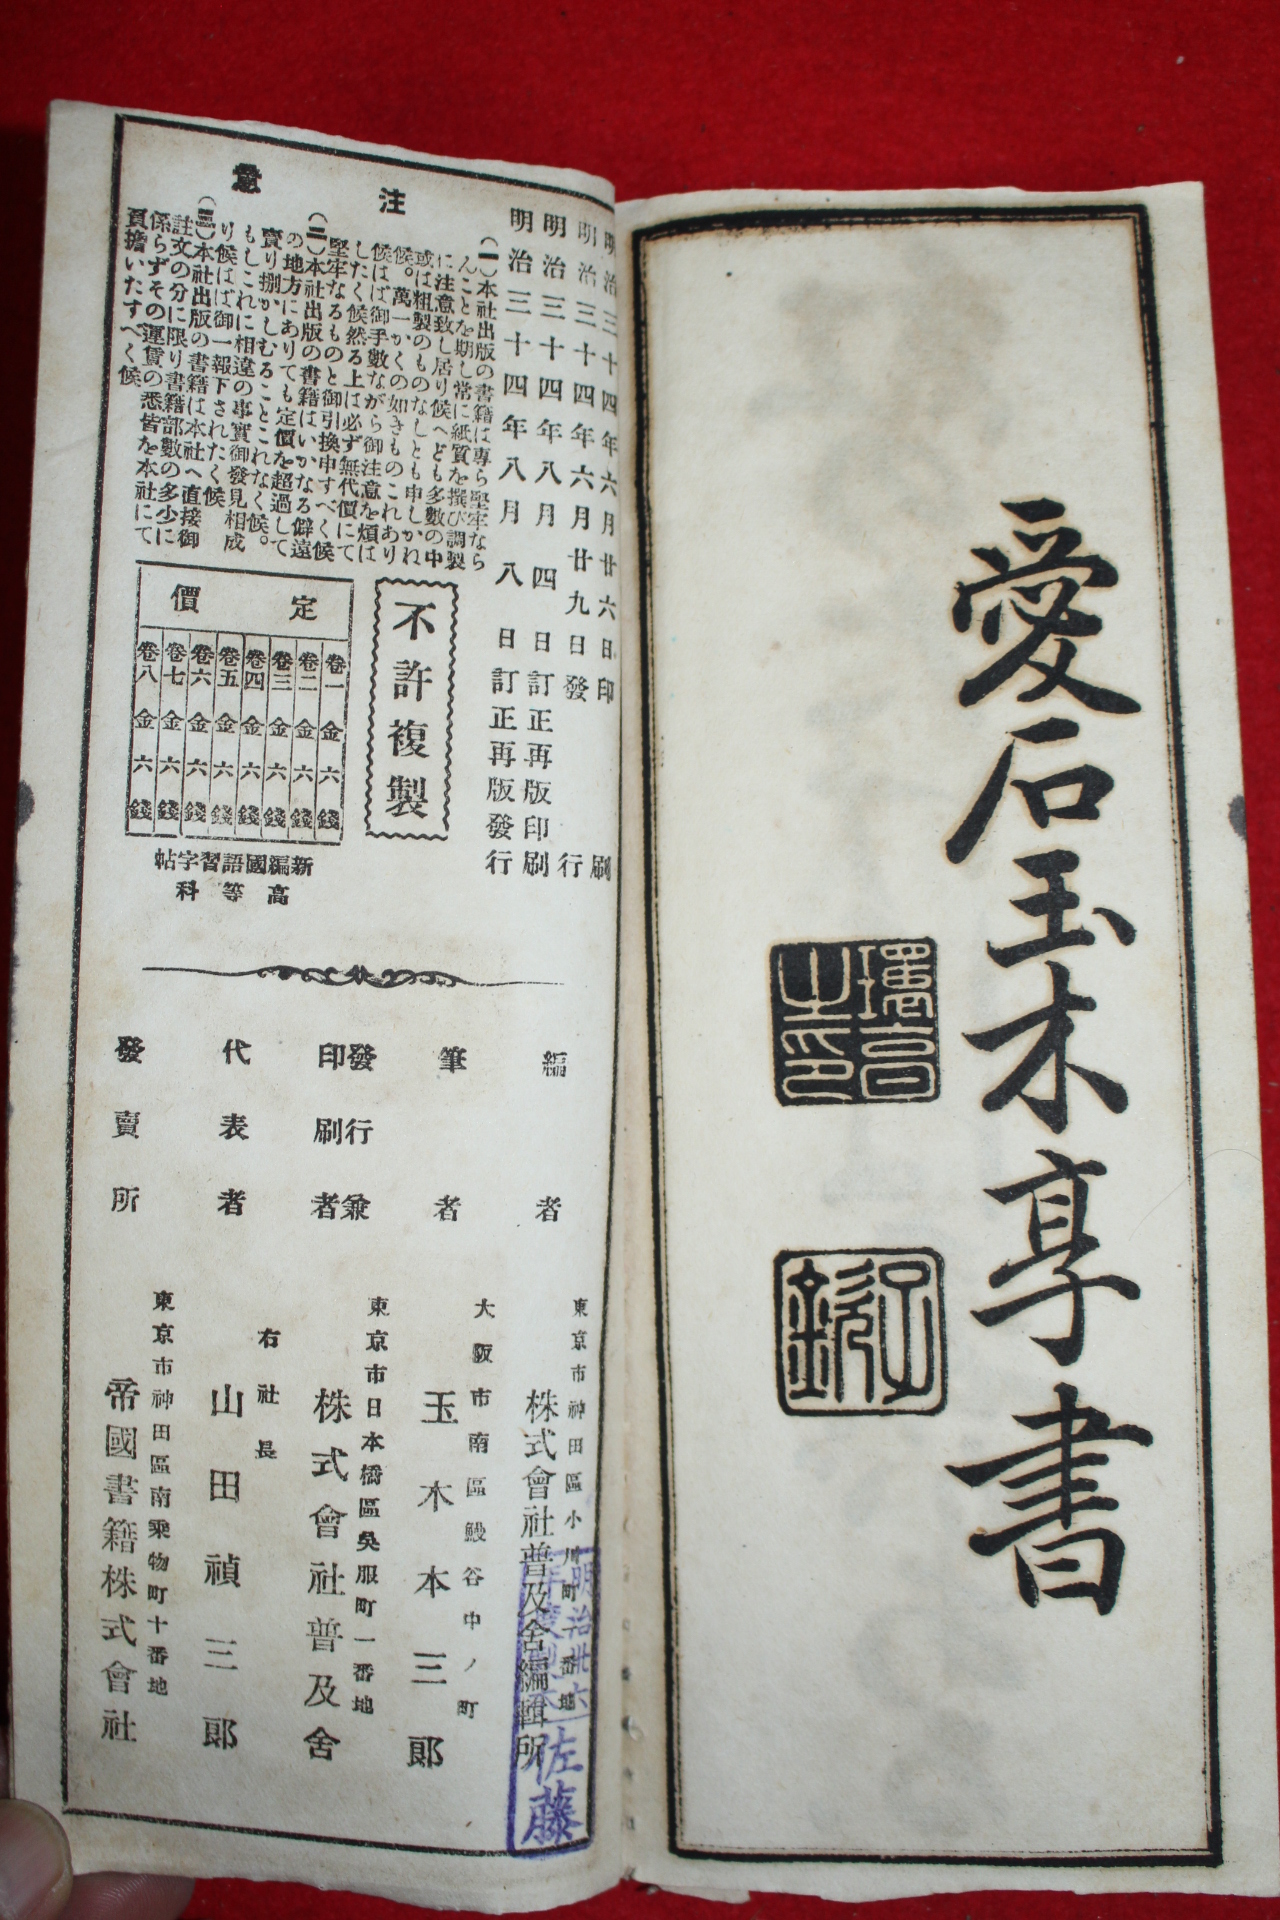 愛石玉木享書
明治三十四年六月廿六日印刷
明治三十四年六月廿九日發行
明治三十四年八月四日訂正再版印刷
明治三十四年八月八日訂正再版發行
注意
(一)本社出版の書籍は專ら堅牢なら
んことを期し常に紙質を撰び調製
に注意致し居り候へども多數の中
或は粗製のものなしとも申しかね
候。萬一かくの如きものこれあり
候はば御手數ながら御注意を煩は
したく候然る上は必ず無代價にて
堅牢なるものと御引換申すべく候
(二)本社出版の書籍はいかなる僻遠
の地方にありても定價を超過して
賣り捌かしむることこれなく候。
もしこれに相違の事實御發見相成
り候はば御一報下されたく候
(三)本社出版の書籍は本社へ直接御
註文の分に限り書籍部數の多少に
係らずその運賃の悉皆を本社にて
負擔いたすべく候
不許複製
定價
卷一金六錢
卷二金六錢
卷三金六錢
卷四金六錢
卷五金六錢
卷六金六錢
卷七金六錢
卷八金六錢
新編國語習字帖
高等科
編者
東京市神田區小川町一番地
株式會社普及舍編輯所
筆者
大阪市南區鰻谷中ノ町
玉木本三郎
發行兼
印刷者
東京市日本橋區吳服町一番地
株式會社普及舍
代表者
右社長
山田禎三郎
發賣所
東京市神田區南乘物町十番地
帝國書籍株式會社
佐藤